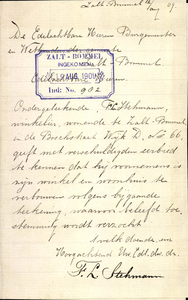 Zalt-Bommel
Aug 29.
De Edelachtbare Heeren Burgemeester
en Wethouders
ZALT-BOMMEL
INGEKOMEN
AUG. 1901
Ind: No. 902
Bommel
Edelachtbare Heeren
Ondergeteekende F. L. Stehmann,
winkelier, wonende te Zalt-Bommel
in de Boschstraat Wijk D, No 66
geeft met verschuldigden eerbied
te kennen dat hij voornemens is
zijn winkel en woonhuis te
verbouwen volgens bijgaande
teekening, waarvan beleefd toe-
stemming wordt verzocht
't welk doende, enz
Hoogachtend Uw Edel. dw. dr.
F. L. Stehmann